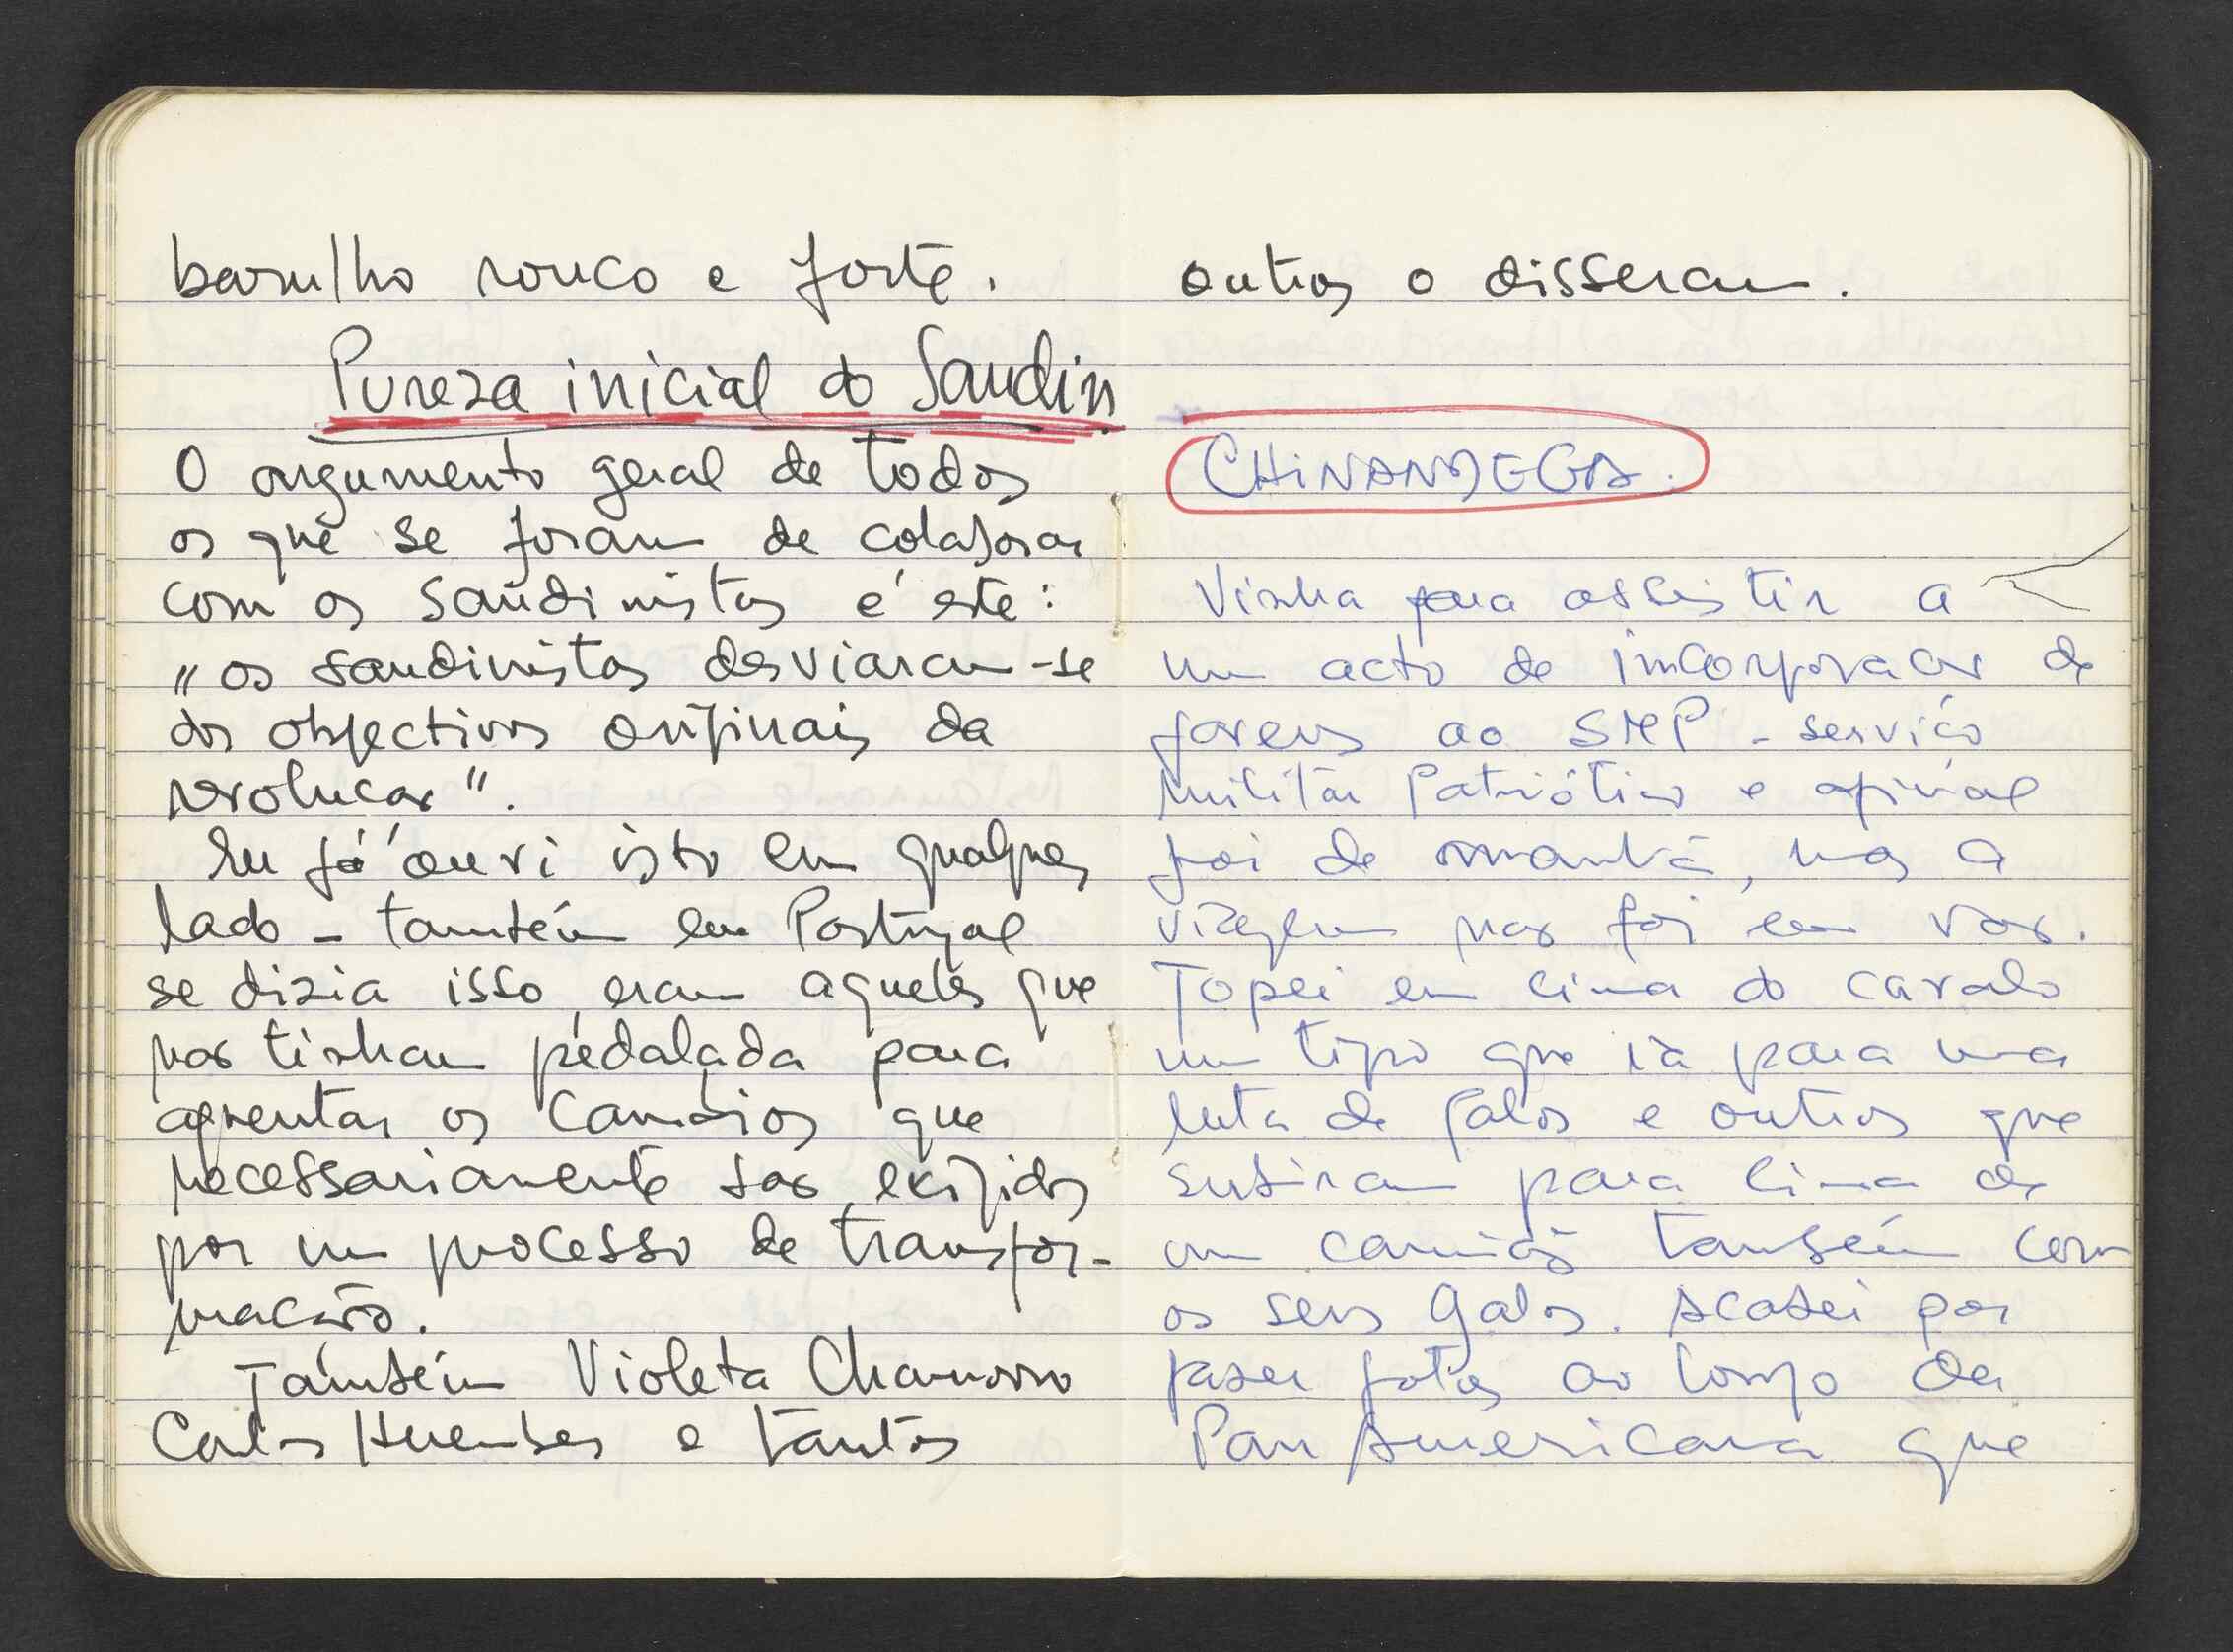 barulho rouco e forte.
Pureza inicial do Sandin
O argumento geral de todos
os que se foram de colaborar
com os sandinistas é este:
"os sandinistas desviaram-se
dos objectivos originais da
revolucão".
Eu já ouvi isto em qualquer
lado - também em Portugal
se dizia isso, eram aqueles que
não tinham pedalada para
aguentar os cambios que
necessariamente são exigidos
por um processo de transfor-
mação.
Também Violeta Chamorro
Carlos Huembes e tantos
outros o disseram.
CHINANDEGA.
Vinha para assistir a
um acto de incorporacão de
jovens ao SMP - serviço
Militar Patriótico e afinal
foi de manhã, mas a
viagem não foi em vão.
Topei em cima do cavalo
um tipo que ia para uma
luta de galos e outros que
subiram para cima de
um camião também com
os seus galos. Acabei por
fazer fotos ao longo da
Pan Americana que